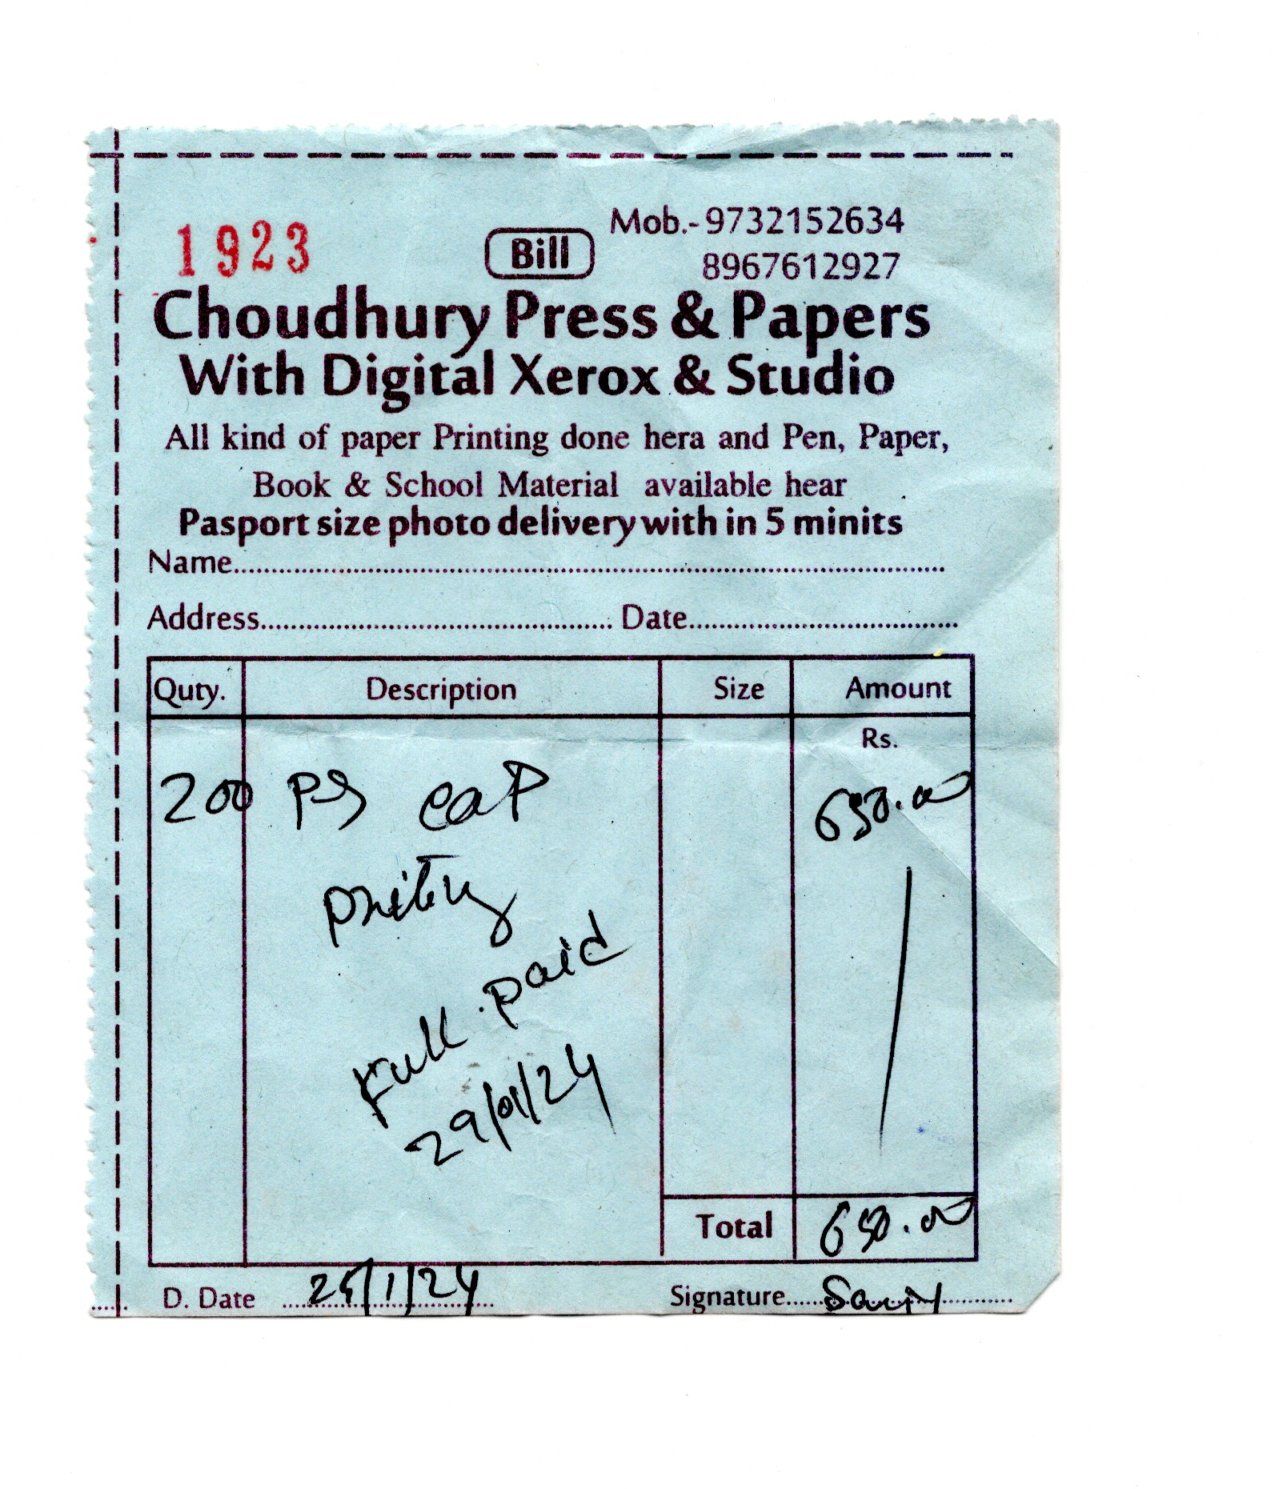 1923
Bill
Mob.-9732152634
8967612927
Choudhury Press & Papers
With Digital Xerox & Studio
All kind of paper Printing done hera and Pen, Paper,
Book & School Material available hear
Pasport size photo delivery with in 5 minits
Name
Address Date
Quty. Description Size Amount
Rs.
200 Ps cap 650.00
Full paid
29/01/24
Total 650.00
D. Date 25/1/24 Signature